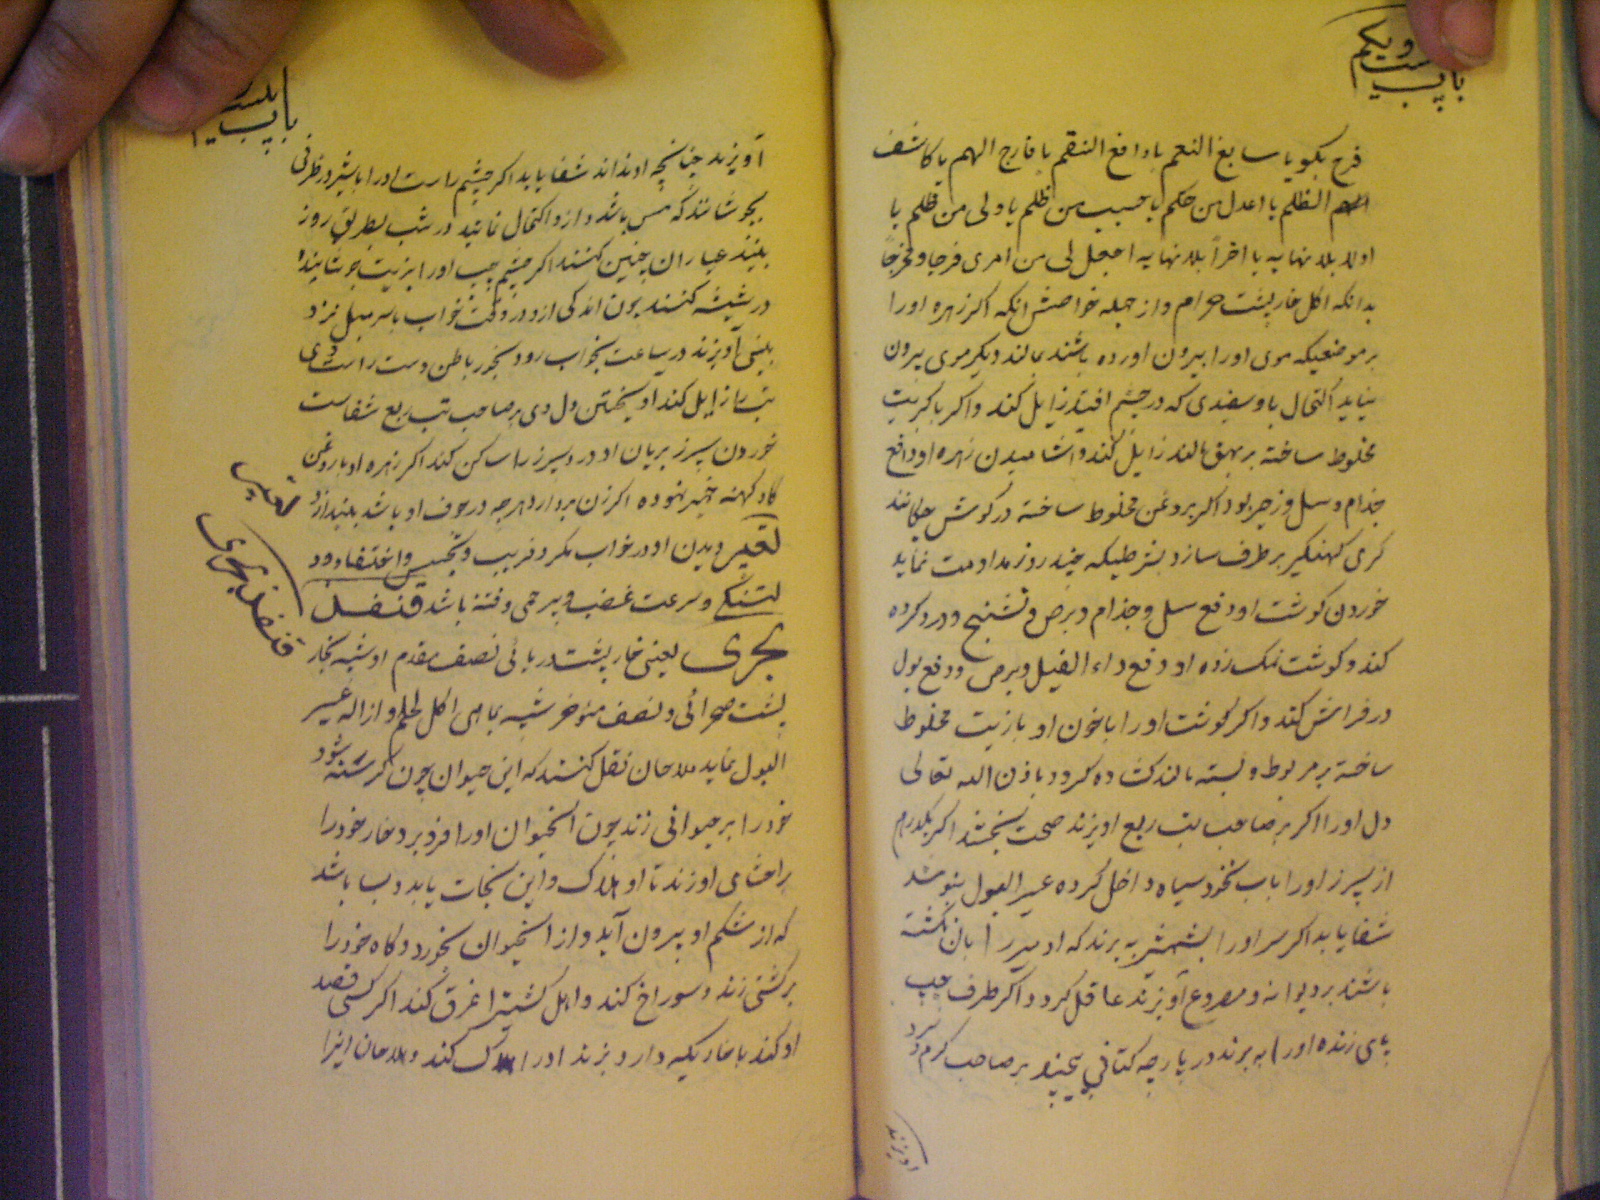 باب بیست و یکم
فرج بکو یا سابغ النعم یا دافع النقم یا فارج الهم یا کاشف
الظلم یا اعدل من حکم یا حسیب من ظلم یا ولی من ظلم یا
اولا بلا نهایه یا اخراً بلا نهایه اجعل لی من امری فرجا و مخرجا
بدانکه اکل خارپشت حرام و از جمله خواصش انکه اکر زهره اورا
بر موضعیکه موی اورا بیرون اورده باشند بمالند دیکر موی بیرون
نیاید اکتحال با و سفیدی که در چشم افتد زایل کند و اکر با کبریت
مخلوط ساخته بر بهق مالند زایل کند و اشامیدن زهره او دافع
جذام و سل و زحیر بود اکر بروغن مخلوط ساخته در کوش چکانند
کری کهنکیر برطرف سازد بشرطیکه چند روز مداومت نماید
خوردن کوشت او دفع سل و جذام و برص و تشنج و درد کرده
کند و کوشت نمک زده او دفع داء الفیل و برص و دفع بول
در فراش کند و اکر کوشت اورا با خون او با زیت مخلوط
ساخته بر مربوط و بسته مالند کشاده کردد باذن الله تعالی
دل اورا اکر بر صاحب تب ربع اویزند صحت بخشد اکر یکدرم
از سپرز اورا باب نخود سیاه داخل کرده عسیر البول بنوشد
شفا یابد اکر سر اورا بشمشیر ببرند که ادمیرا بان نکشته
باشند بر دیوانه و مصروع آویزند عاقل کردد اکر طرف چپ
پای زنده اورا ببرند در پارچه کتانی پیچند بر صاحب کرم و سرد
اویزند
آویزند چنانچه او نداند شفا یابد اکر چشم راست اورا با شیر در ظرفی
بجوشانند که مس باشد و ازو اکتحال نمایند در شب بطریق روز
بینند عیاران چنین کنند اکر چشم چپ اورا بزیت جوشانیده
در شیشه کنند چون اندکی ازو در وقت خواب با سر میل نزد
بینی آویزند در ساعت بخواب رود بخور باطن دست راست وی
تب را زایل کند اویختن دل وی بر صاحب تب ربع شفاست
خوردن سپرز بریان او درد سپرز را ساکن کند اکر زهره او با روغن
کاو کهنه خمیر نموده اکر زن بردارد هرچه در جوف او باشد بیندازد
تعبیر دیدن او در خواب مکر و فریب و تجسس و اختفا و دود
لتنکی و سرعت غضب و بیرحمی و فتنه باشد قنفذ
بحری یعنی خارپشت دریائی نصف مقدم او شبیه بخار
پشت صحرائی و نصف مؤخر شبیه بماهی اکل لحم او ازاله عسیر
البول نماید ملاحان نقل کنند که این حیوان چون کرسنه شود
خود را بر حیوانی زند چون انحیوان اورا فرو برد خار خود را
بر احشای او زند تا او هلاک و این نجات یابد و بسا باشد
که از شکم او بیرون آید و از انحیوان بخورد و کاه خود را
بر کشتی زند و سوراخ کند و اهل کشتیرا غرق کند اکر کسی قصد
او کند با خاریکه دارد بزند اورا هلاک کند و ملاحان اینرا
تعبیر
قنفذ بحری